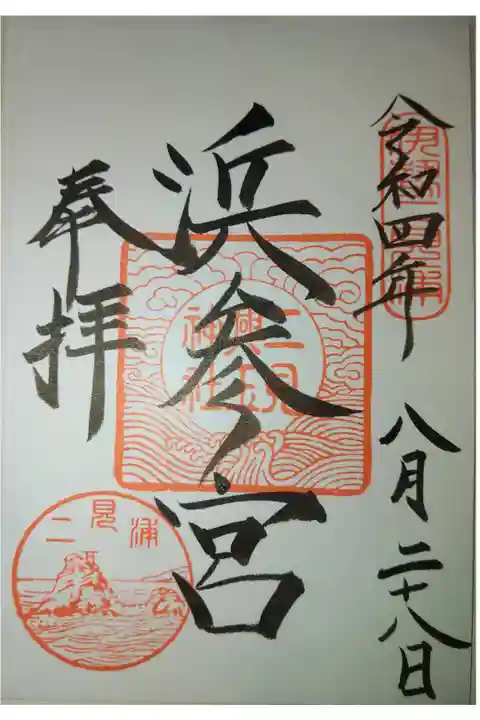 令和四年 八月二十八日
浜参宮
奉拝
二見興玉神社
二見浦